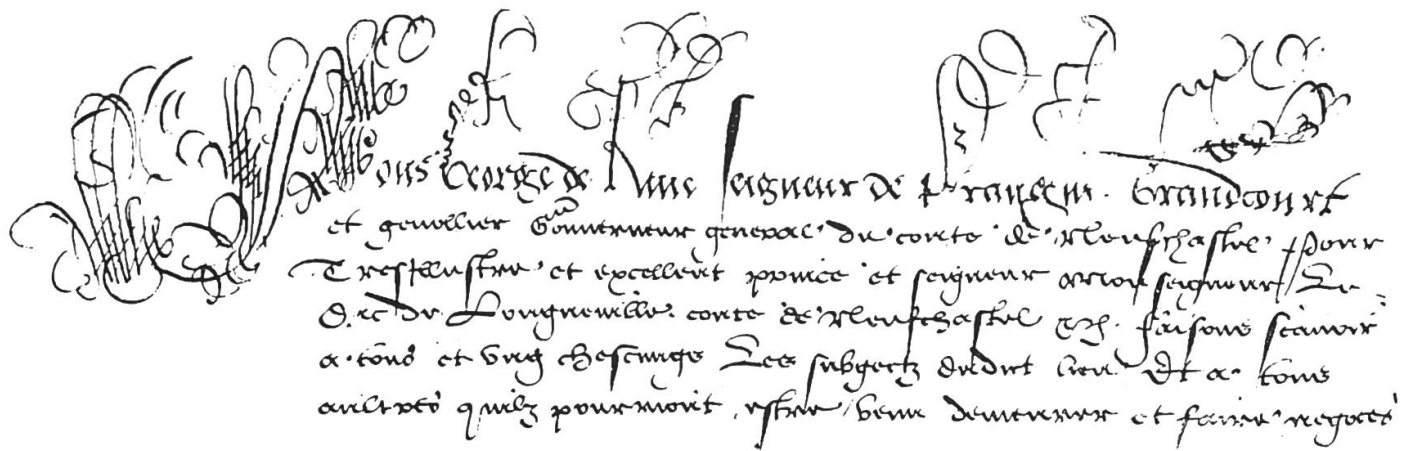 Nous George de Rive seigneur de Prangin. Grandcourt
et genollier Gouverneur general du conte de Neufchastel pour
Tresillustre et excellent prince et seigneur Monseigneur Le
Duc de Longueville conte de Neufchastel &c. faisons scavoir
a tous et ung chescungs Les subgectz dudict lieu Et a tous
aultres quilz pourroient estre venu demeurer et faire negoces